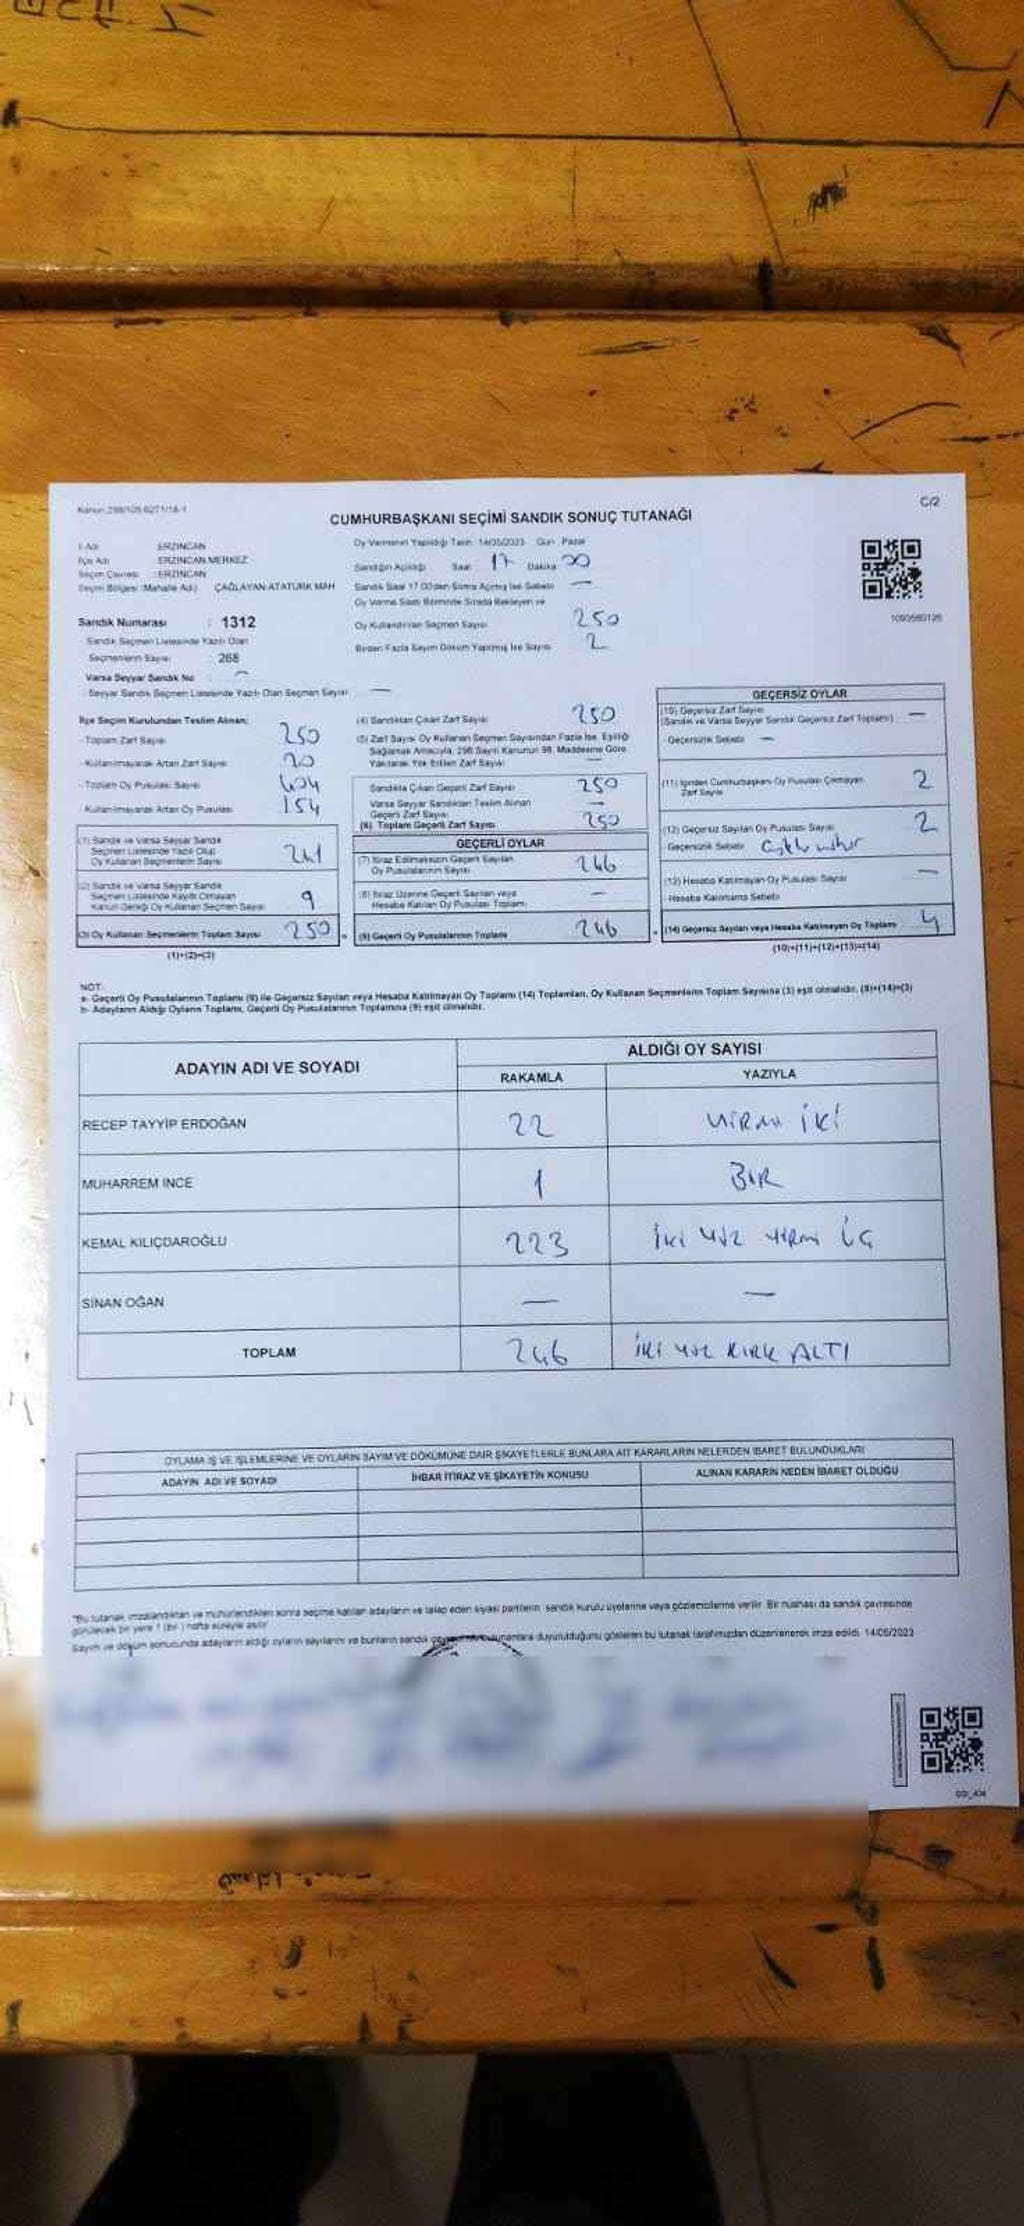 Kanun 298/105.0271/18-1
C/2
CUMHURBAŞKANI SEÇİMİ SANDIK SONUÇ TUTANAĞI
İl Adı ERZİNCAN
İlçe Adı ERZİNCAN MERKEZ
Seçim Çevresi : ERZİNCAN
Seçim Bölgesi (Mahalle Adı) ÇAĞLAYAN-ATATÜRK MAH
Sandık Numarası : 1312
Sandık Seçmen Listesinde Yazılı Olan
Seçmenlerin Sayısı 268
Varsa Seyyar Sandık No —
Seyyar Sandık Seçmen Listesinde Yazılı Olan Seçmen Sayısı —
Oy Vermenin Yapıldığı Tarih 14/05/2023 Gün Pazar
Sandığın Açıldığı Saat 17 Dakika
Sandık Saat 17.00'den Sonra Açılmış İse Sebebi —
Oy Verme Saati Bitiminde Sırada Bekleyen ve
Oy Kullandırılan Seçmen Sayısı 250
Birden Fazla Sayım Döküm Yapılmış İse Sayısı 2
İlçe Seçim Kurulundan Teslim Alınan;
- Toplam Zarf Sayısı 250
- Kullanılmayarak Artan Zarf Sayısı 20
- Toplam Oy Pusulası Sayısı 404
- Kullanılmayarak Artan Oy Pusulası 154
(1) Sandık ve Varsa Seyyar Sandık
Seçmen Listesinde Yazılı Olup
Oy Kullanan Seçmenlerin Sayısı 241
(2) Sandık ve Varsa Seyyar Sandık
Seçmen Listesinde Kayıtlı Olmayan
Kanun Gereği Oy Kullanan Seçmen Sayısı 9
(3) Oy Kullanan Seçmenlerin Toplam Sayısı 250
(1)+(2)=(3)
(4) Sandıktan Çıkan Zarf Sayısı 250
(5) Zarf Sayısı Oy Kullanan Seçmen Sayısından Fazla İse, Eşitliği
Sağlamak Amacıyla, 298 Sayılı Kanunun 98. Maddesine Göre
Yakılarak Yok Edilen Zarf Sayısı —
Sandıkta Çıkan Geçerli Zarf Sayısı 250
Varsa Seyyar Sandıktan Teslim Alınan
Geçerli Zarf Sayısı —
(6) Toplam Geçerli Zarf Sayısı 250
GEÇERLİ OYLAR
(7) İtiraz Edilmeksizin Geçerli Sayılan
Oy Pusulalarının Sayısı 246
(8) İtiraz Üzerine Geçerli Sayılan veya
Hesaba Katılan Oy Pusulası Toplamı —
= (9) Geçerli Oy Pusulalarının Toplamı 246
1090580126
GEÇERSİZ OYLAR
(10) Geçersiz Zarf Sayısı
(Sandık ve Varsa Seyyar Sandık Geçersiz Zarf Toplamı) —
- Geçersizlik Sebebi —
(11) İçinden Cumhurbaşkanı Oy Pusulası Çıkmayan
Zarf Sayısı 2
(12) Geçersiz Sayılan Oy Pusulası Sayısı 2
Geçersizlik Sebebi
(13) Hesaba Katılmayan Oy Pusulası Sayısı —
Hesaba Katılmama Sebebi
+ (14) Geçersiz Sayılan veya Hesaba Katılmayan Oy Toplamı 4
(10)+(11)+(12)+(13)=(14)
NOT:
a- Geçerli Oy Pusulalarının Toplamı (9) ile Geçersiz Sayılan veya Hesaba Katılmayan Oy Toplamı (14) Toplamları, Oy Kullanan Seçmenlerin Toplam Sayısına (3) eşit olmalıdır. (9)+(14)=(3)
b- Adayların Aldığı Oyların Toplamı, Geçerli Oy Pusulalarının Toplamına (9) eşit olmalıdır.
ADAYIN ADI VE SOYADI
ALDIĞI OY SAYISI
RAKAMLA YAZIYLA
RECEP TAYYİP ERDOĞAN 22 YİRMİ İKİ
MUHARREM İNCE 1 BİR
KEMAL KILIÇDAROĞLU 223 İki YÜZ YİRMİ ÜÇ
SİNAN OĞAN — —
TOPLAM 246 İKİ YÜZ KIRK ALTI
OYLAMA İŞ VE İŞLEMLERİNE VE OYLARIN SAYIM VE DÖKÜMÜNE DAİR ŞİKAYETLERLE BUNLARA AİT KARARLARIN NELERDEN İBARET BULUNDUKLARI
ADAYIN ADI VE SOYADI İHBAR İTİRAZ VE ŞİKAYETİN KONUSU ALINAN KARARIN NEDEN İBARET OLDUĞU
*Bu tutanak imzalandıktan ve mühürlendikten sonra seçime katılan adayların ve talep eden siyasi partilerin sandık kurulu üyelerine veya gözlemcilerine verilir. Bir nüshası da sandık çevresinde
görülecek bir yere 1 (bir) hafta süreyle asılır
Sayım ve döküm sonucunda adayların aldığı oyların sayılarını ve bunların sandık duyurulduğunu gösteren bu tutanak tarafımızdan düzenlenerek imza edildi. 14/05/2023